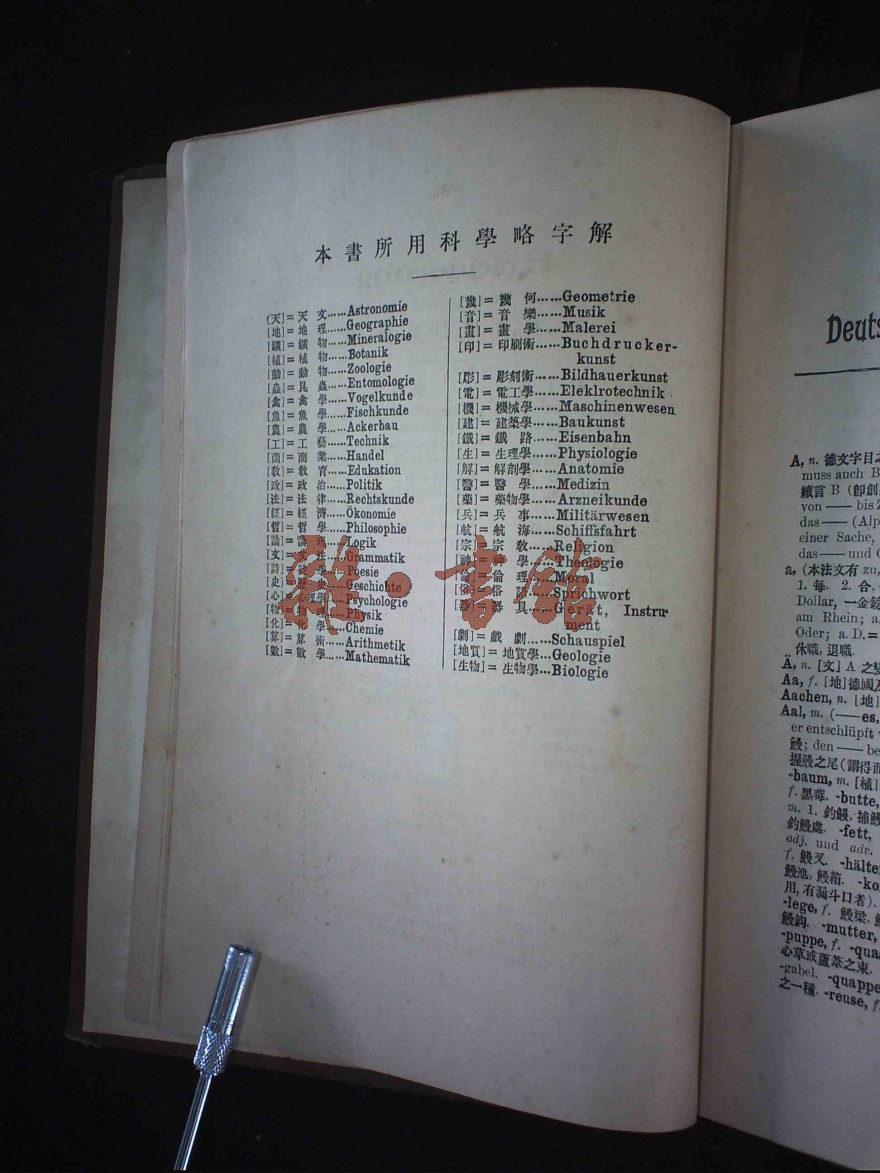 本書所用科學略字解
[天]=天 文......Astronomie
[地]=地 理......Geographie
[鑛]=鑛 物......Mineralogie
[植]=植 物......Botanik
[動]=動 物......Zoologie
[蟲]=昆 蟲......Entomologie
[禽]=禽 學......Vogelkunde
[魚]=魚 學......Fischkunde
[農]=農 學......Ackerbau
[工]=工 藝......Technik
[商]=商 業......Handel
[敎]=敎 育......Edukation
[政]=政 治......Politik
[法]=法 律......Rechtskunde
[經]=經 濟......Ökonomie
[哲]=哲 學......Philosophie
[論]=論 理......Logik
[文]=文 法......Grammatik
[詩]=詩 學......Poesie
[史]=歷 史......Geschichte
[心]=心理學......Psychologie
[物]=物 理......Physik
[化]=化 學......Chemie
[算]=算 術......Arithmetik
[數]=數 學......Mathematik
[幾]=幾 何......Geometrie
[音]=音 樂......Musik
[畫]=畫 學......Malerei
[印]=印刷術......Buchdrucker-
kunst
[彫]=彫刻術......Bildhauerkunst
[電]=電工學......Eleklrotechnik
[機]=機械學......Maschinenwesen
[建]=建築學......Baukunst
[鐵]=鐵 路......Eisenbahn
[生]=生理學......Physiologie
[解]=解剖學......Anatomie
[醫]=醫 學......Medizin
[藥]=藥物學......Arzneikunde
[兵]=兵 事......Militärwesen
[航]=航 海......Schiffsfahrt
[宗]=宗 敎......Religion
[神]=神 學......Theologie
[倫]=倫 理......Moral
[俗]=俗 語......Sprichwort
[器]=器 具......Gerät, Instru-
ment
[劇]=戲 劇......Schauspiel
[地質]=地質學...Geologie
[生物]=生物學...Biologie
雜·書館
Deuts
A, n. 德文字目之
muss auch B
續言 B (卽創
von — bis Z
das — (Alp
einer Sache,
das — und O
a, (本法文有 zu,
1. 每. 2. 合,
Dollar, 一金
am Rhein; a.
Oder; a. D. =
休職, 退職.
Ä, n. [文] A 之變
Aa, f. [地] 德國及
Aachen, n. [地]
Aal, m. (—es,
er entschlüpft
鰻; den — be
握鰻之尾 (謂得而
-baum, m. [植]
f. 黑莓. -butte,
m. 1. 釣鰻, 捕鰻
釣鰻處. -fett,
adj. und adv.
f. 鰻叉. -hälter
鰻池, 鰻箱. -ko
用, 有漏斗口者).
-lege, f. 鰻梁,
鰻鈎. -mutter,
-puppe, f. -quas
心草或蘆葦之束.
-gabel. -quappe
之一種. -reuse, f.